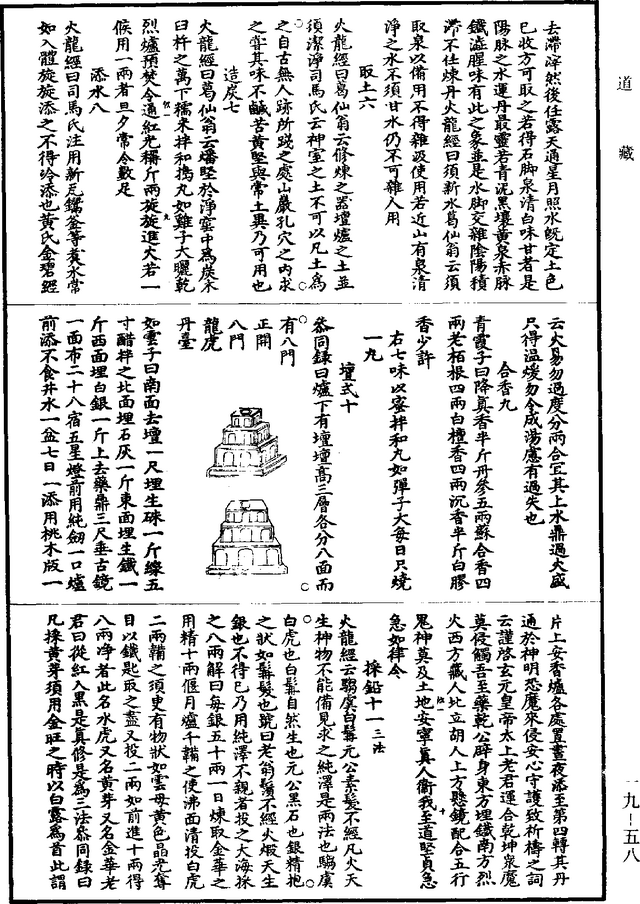 道藏
去滯滓然後任露天通星月照水既定土色
已收方可取之若得石脚泉清白味甘者是
陽脉之水運丹最靈若青泥黑壤黄泉赤脉
鐵澁腥味有此之象並是水脚交雜陰陽積
滯不任煉丹火龍經曰須新水葛仙翁云須
取泉以備用不得雜汲使用若近山有泉清
淨之水不須甘水仍不可雜人用
取土六
火龍經曰葛仙翁云修煉之器壇爐之土並
須潔淨司馬氏云神室之土不可以凡土爲
之自古無人跡所踐之處山巖孔穴之内求
之嘗其味不鹹苦黄堅與常土異乃可用也
造炭七
火龍經曰葛仙翁云燔堅於淨窑中爲炭末
臼杵之萬下糯米拌和搗丸如雞子大曬乾
烈爐預焚令通紅光稱斤兩旋旋進火若一
候用一兩者旦夕常令數足
添水八
火龍經曰司馬氏注用新瓦鐺釜等煑水常
如人體旋旋添之不得冷添也黄氏金碧經
云火易勿過度分兩合宜其上水鼎過大盛
只得温煖勿令成湯慮有過失也
合香九
青霞子曰降真香半斤丹參五兩蘇合香四
兩老栢根四兩白檀香四兩沉香半斤白膠
香少許
右七味以蜜拌和丸如彈子大每日只燒
一丸
壇式十
叅同録曰爐下有壇壇高三層各分八面而
有八門
正開
八門
龍虎
丹臺
如雲子曰南面去壇一尺埋生硃一斤線五
寸醋拌之北面埋石灰一斤東面埋生鐵一
斤西面埋白銀一斤上去藥鼎三尺垂古鏡
一面布二十八宿五星燈前用純劒一口爐
前添不食井水一盆七日一添用桃木版一
片上安香爐各處置晝夜添至第四轉其丹
通於神明恐魔來侵安心守護致祈禱之詞
云謹啓玄元皇帝太上老君運合乾坤衆魔
莫侵觸吾至藥乾公辟身東方埋鐵南方烈
火西方藏人北立胡人上方懸鏡配合五行
鬼神莫及土地安寧真人衛我至道堅貞急
急如律令
採鉛十一三法
火龍經云騶虞白髯元公素髮不經凡火天
生神物不能備見求之純澤是兩法也騶虞
白虎也白髯自然生也元公黑石也銀精抱
之狀如鬅髮也號曰老翁鬚不經火煅天生
銀也不得已乃用純澤不親者投之大海採
之八兩解曰每銀五十兩一日煉取金華之
用精十兩偃月爐千鞴之使沸面清投白虎
二兩鞴之須臾有物狀如雲母黄色晶光奪
目以鐵匙取之盡又投二兩如前進十兩得
八兩淨者此名水虎又名黄芽又名金華老
君曰從紅入黑是真修是爲三法叅同録曰
凡採黄芽須用金旺之時以白露爲首此謂
一九—五八